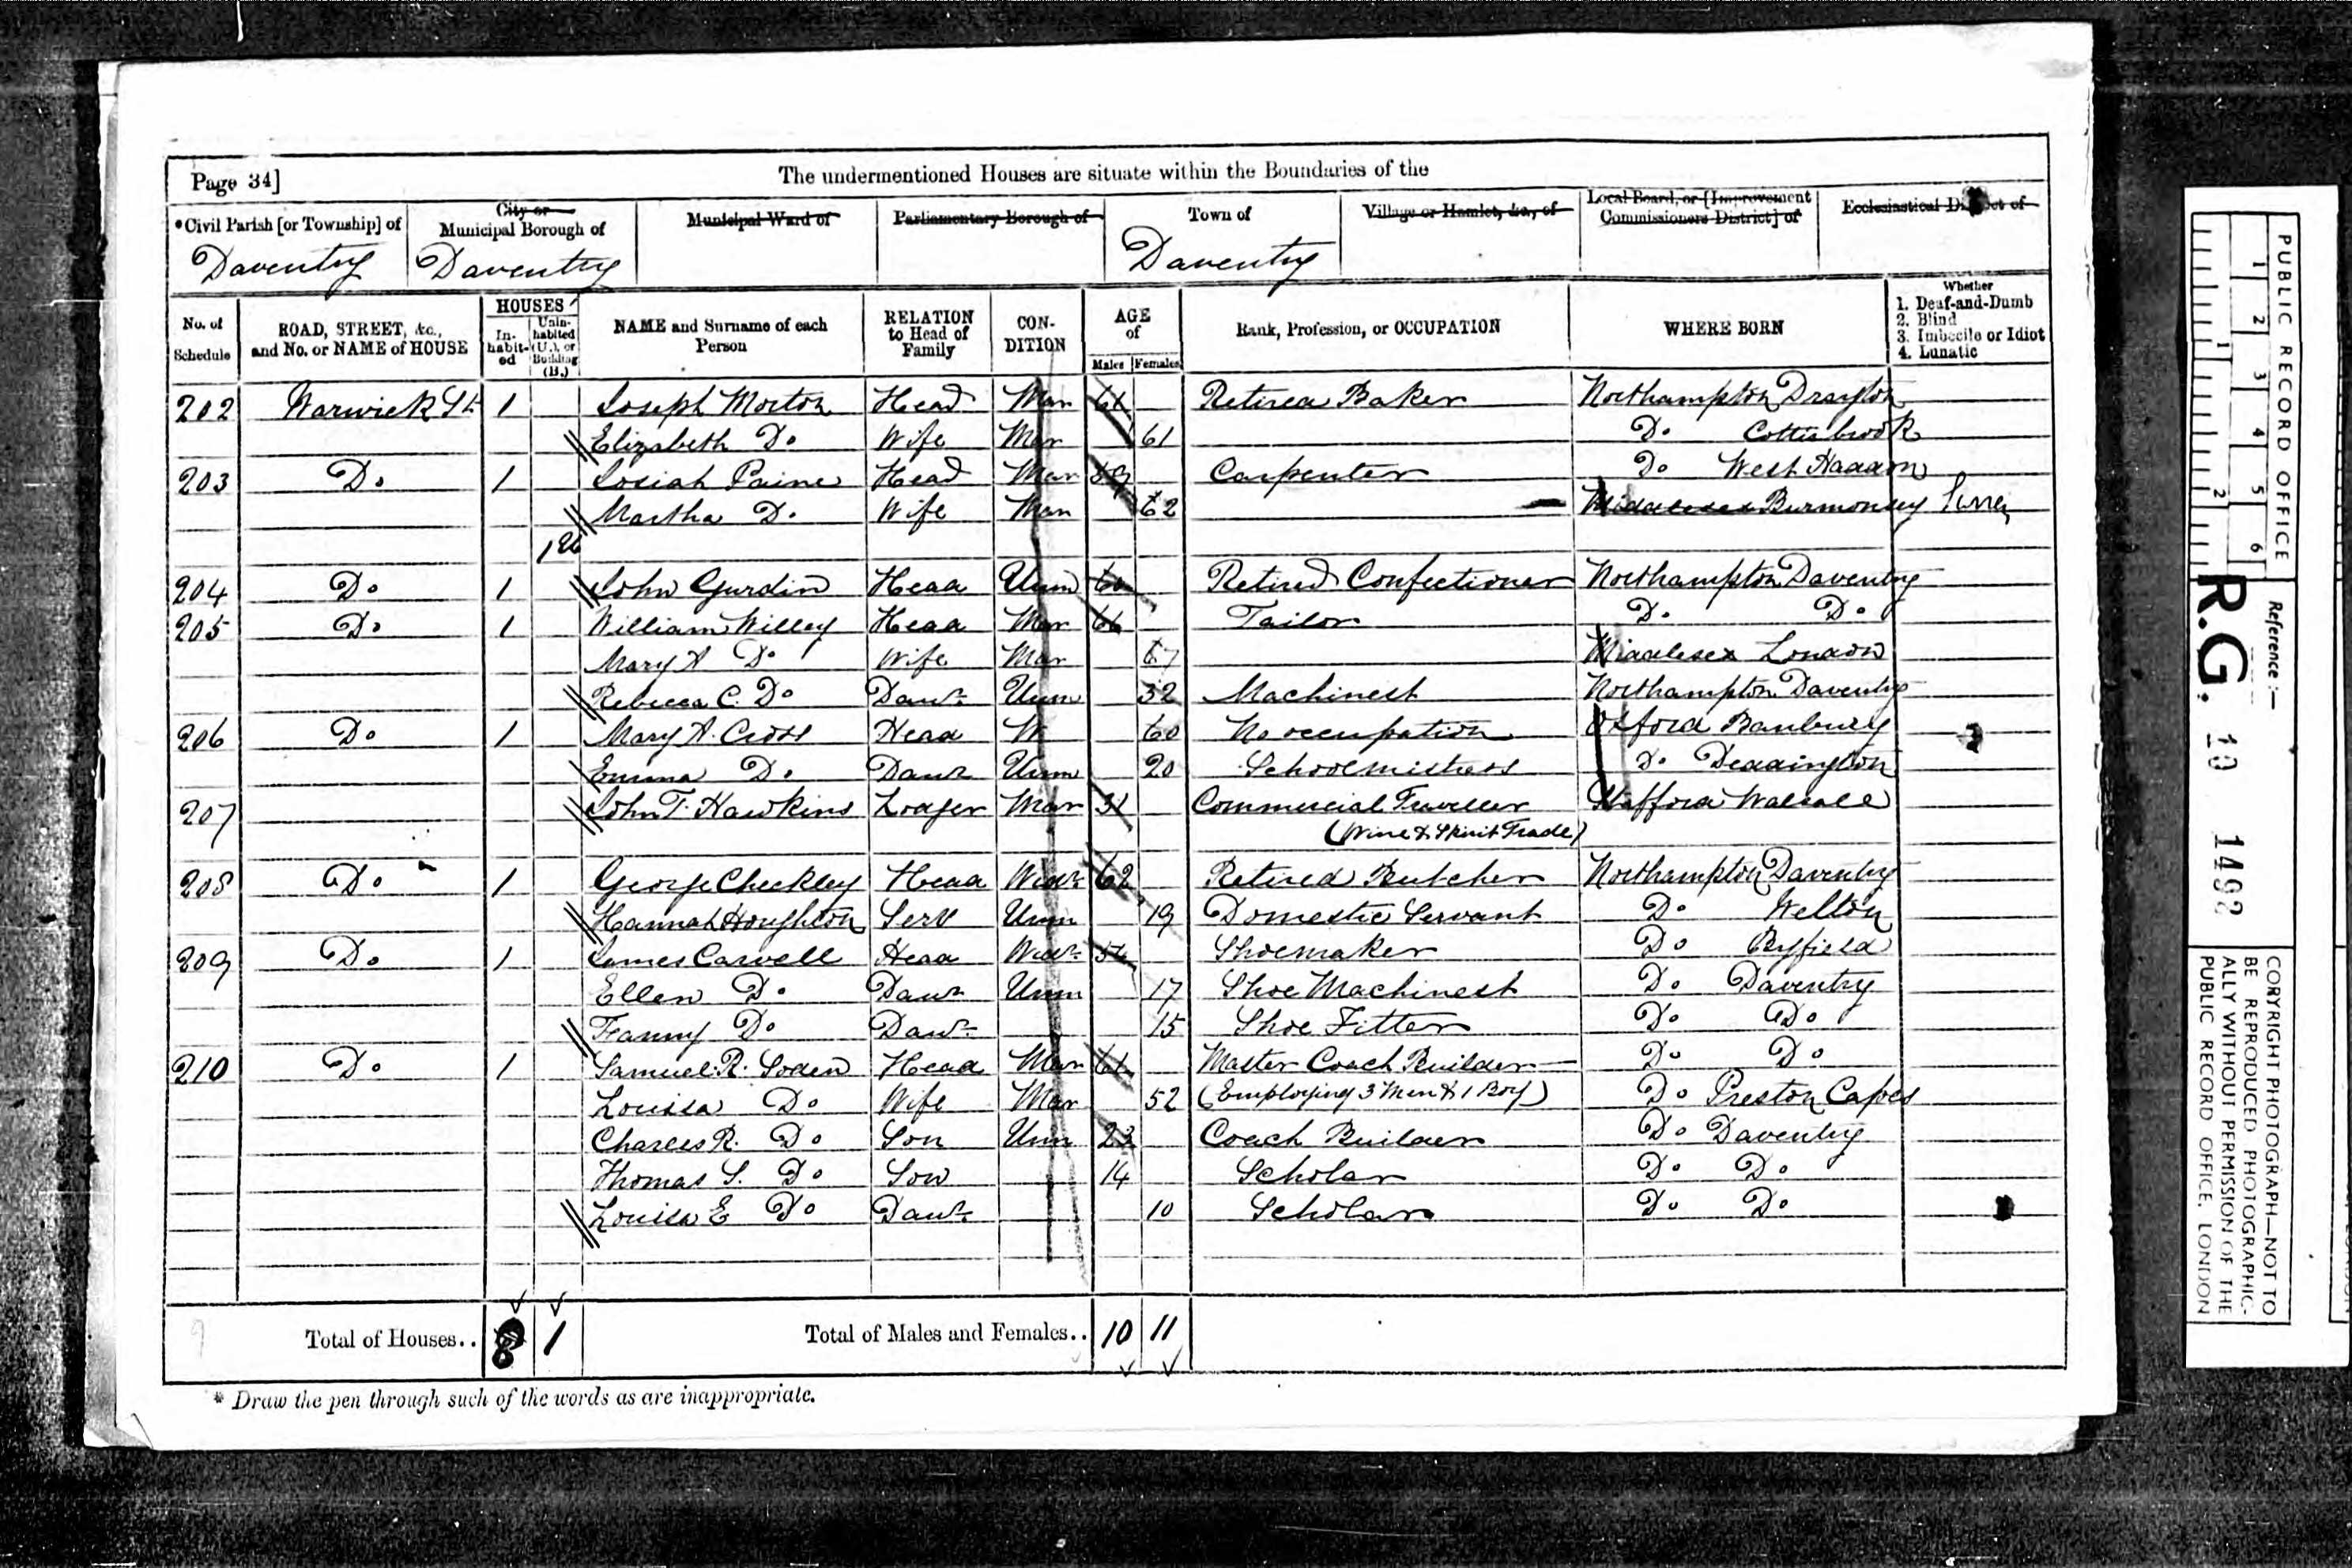 Page 34]
The undermentioned Houses are situate within the Boundaries of the
*Civil Parish [or Township] of
City or Municipal Borough of
Municipal Ward of
Parliamentary Borough of
Town of
Village or Hamlet, &c., of
Local Board, or [Improvement Commissioners District] of
Ecclesiastical District of
Daventry Daventry Daventry
No. of Schedule
ROAD, STREET, &c., and No. or NAME of HOUSE
HOUSES
In-habit-ed
Unin-habited (U.), or Building (B.)
NAME and Surname of each Person
RELATION to Head of Family
CON-DITION
AGE of
Males Females
Rank, Profession, or OCCUPATION
WHERE BORN
Whether
1. Deaf-and-Dumb
2. Blind
3. Imbecile or Idiot
4. Lunatic
202 Warwick St 1 Joseph Morton Head Mar 61 Retired Baker Northampton Drayton
Elizabeth Do Wife Mar 61 Do Cottisbrook
203 Do 1 Josiah Paine Head Mar 59 Carpenter Do West Haddon
Martha Do Wife Mar 62 Middlesex Burmonsey Surrey
1
204 Do 1 John Gurdin Head Unm 60 Retired Confectioner Northampton Daventry
205 Do 1 William Willey Head Mar 66 Tailor Do Do
Mary A Do Wife Mar 67 Middlesex London
Rebecca C. Do Daur Unm 32 Machinest Northampton Daventry
206 Do 1 Mary A. Cross Head W 60 No occupation Oxford Banbury
Emma Do Daur Unm 20 Schoolmistress Do Deddington
207 John T. Hawkins Lodger Mar 31 Commercial Traveller Stafford Walsall
(Wine & Spirit Trade)
208 Do 1 George Checkley Head Widr 62 Retired Butcher Northampton Daventry
Hannah Houghton Serv Unm 19 Domestic Servant Do Welton
209 Do 1 James Carvell Head Widr Shoemaker Do Byfield
Ellen Do Daur Unm 17 Shoe Machinest Do Daventry
Fanny Do Daur 15 Shoe Fitter Do Do
210 Do 1 Samuel R. Soden Head Mar 61 Master Coach Builder Do Do
Louisa Do Wife Mar 52 (Employing 3 Men & 1 Boy) Do Preston Capes
Charles R. Do Son Unm 23 Coach Builder Do Daventry
Thomas S. Do Son 14 Scholar Do Do
Louisa E Do Daur 10 Scholar Do Do
Total of Houses.. 8 1 Total of Males and Females.. 10 11
* Draw the pen through such of the words as are inappropriate.
PUBLIC RECORD OFFICE
1 2 3 4 5 6
1 2
Reference:-
R.G. 10 1492
COPYRIGHT PHOTOGRAPH—NOT TO
BE REPRODUCED PHOTOGRAPHIC-
ALLY WITHOUT PERMISSION OF THE
PUBLIC RECORD OFFICE, LONDON